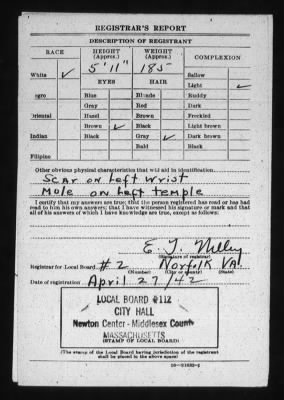 REGISTRAR'S REPORT
DESCRIPTION OF REGISTRANT
RACE HEIGHT (Approx.) WEIGHT (Approx.) COMPLEXION
5'11" 185
White ✓ EYES HAIR Sallow
Light ✓
egro Blue Blonde Ruddy
Gray Red Dark
Oriental Hazel Brown Freckled
Brown ✓ Black Light brown
Indian Black Gray ✓ Dark brown
Bald Black
Filipino
Other obvious physical characteristics that will aid in identification
Scar on Left Wrist
Mole on Left Temple
I certify that my answers are true; that the person registered has read or has had read to him his own answers; that I have witnessed his signature or mark and that all of his answers of which I have knowledge are true, except as follows:
E. J.
(Signature of registrar)
Registrar for Local Board #2 Norfolk VA.
(Number) (City or county) (State)
April 27/42
LOCAL BOARD #112
CITY HALL
Newton Center - Middlesex County
MASSACHUSETTS
(STAMP OF LOCAL BOARD)
(The stamp of the Local Board having jurisdiction of the registrant shall be placed in the above space)